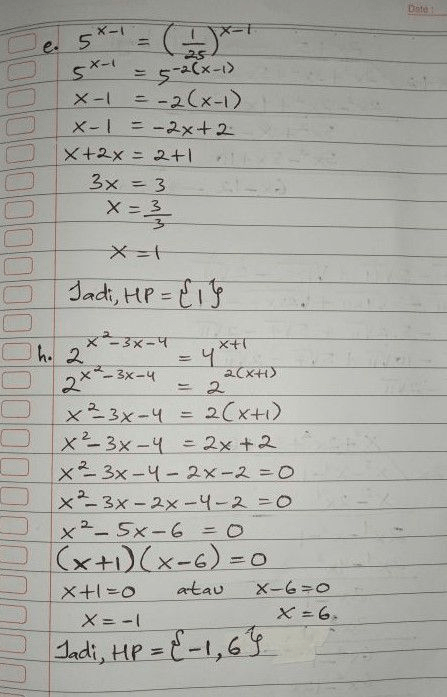 Date :
e. 5^(x-1) = (1/25)^(x-1)
5^(x-1) = 5^(-2(x-1))
x-1 = -2(x-1)
x-1 = -2x+2
x+2x = 2+1
3x = 3
x = 3/3
x = 1
Jadi, HP = {1}
h. 2^(x²-3x-4) = 4^(x+1)
2^(x²-3x-4) = 2^(2(x+1))
x²-3x-4 = 2(x+1)
x²-3x-4 = 2x+2
x²-3x-4-2x-2 = 0
x²-3x-2x-4-2 = 0
x²-5x-6 = 0
(x+1)(x-6) = 0
x+1=0 atau x-6=0
x = -1 x = 6.
Jadi, HP = {-1, 6}